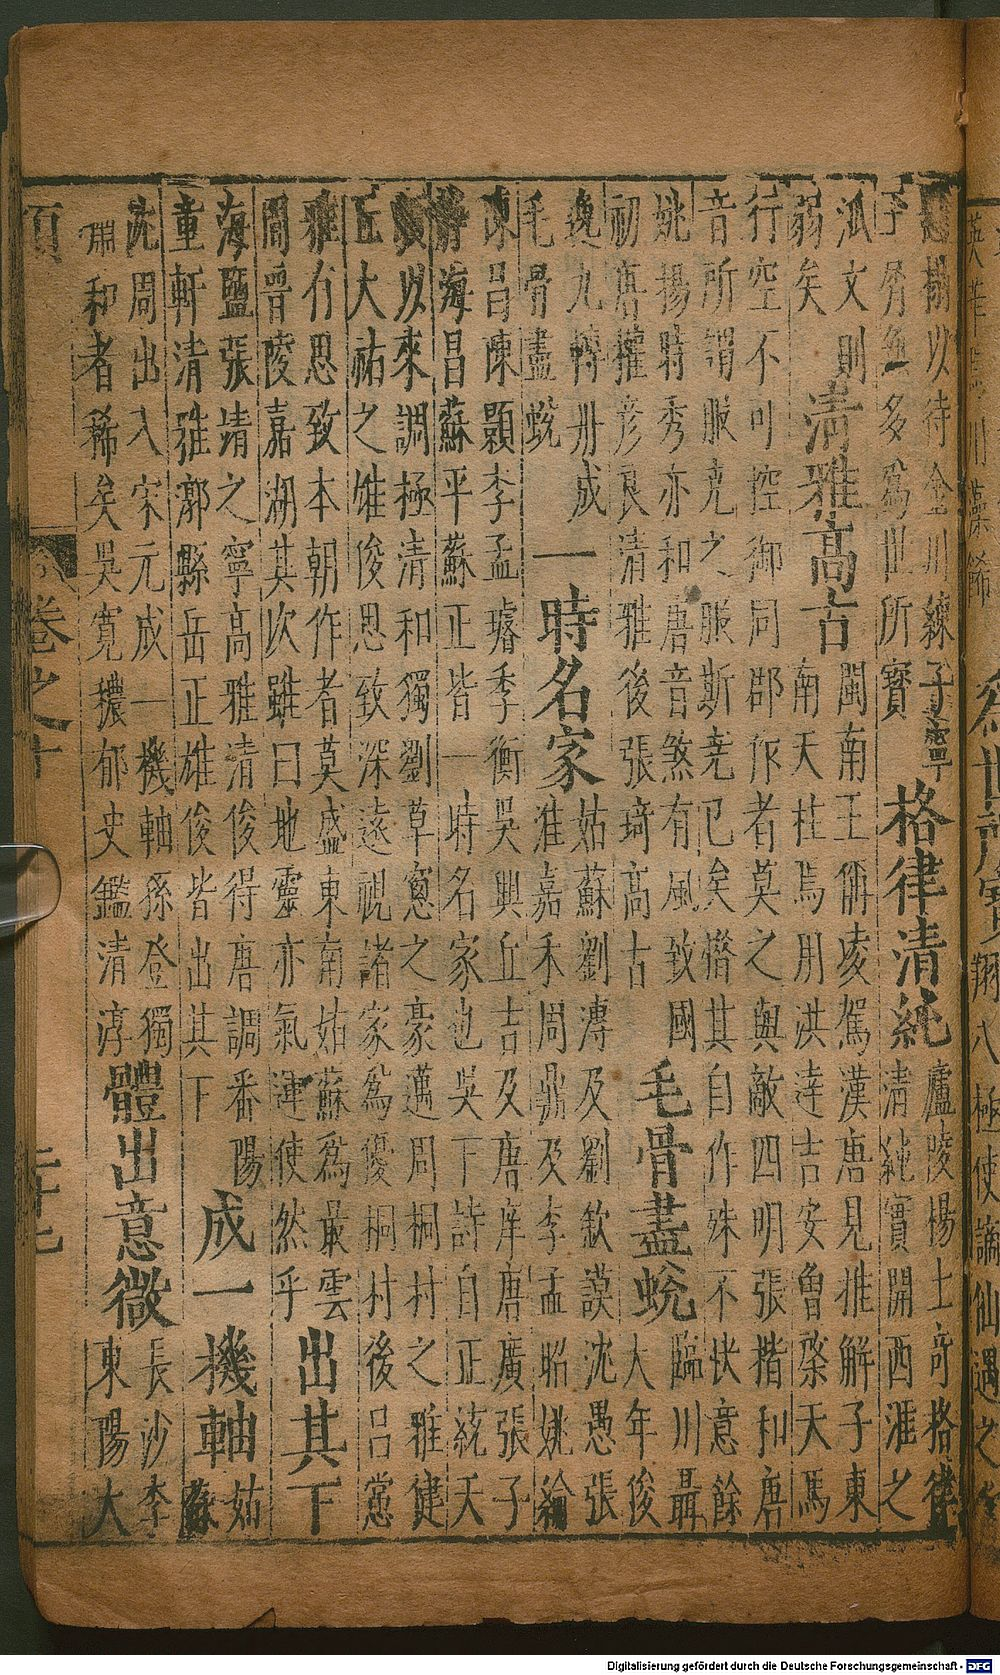 榻以待金川練子寧
子房魚多為世所寶
格律清純
廬陵楊士奇格律
清純實開西淮之
派文則
弱矣
清雅高古
閩南王偁凌駕漢唐見推解子東
南天柱馬用洪逵吉安魯棨天馬
行空不可控御同郡作者莫之與敵四明張楷和唐
音所謂服堯之服斯堯已矣楷其自作殊不快意餘
姚揚時秀亦和唐音煞有風致國
初唐權彥良清雅後張琦高古
毛骨盡蛻
臨川聶
大年俊
逸九轉丹成
毛骨盡蛻
一時名家
姑蘇劉溥及劉欽謨沈愚張
淮嘉禾周鼎及李孟昭姚綸
陳昌陳顥李孟璿季衡吳興丘吉及唐庠唐廣張子
靜海昌蘇平蘇正皆一時名家也吳下詩自正統天
以來調極清和獨劉草窻之豪邁周桐村之雅健
丘大祐之惟俊思致深遠視諸家為優桐村後呂㦂
雅有思致本朝作者莫盛東南姑蘇為最雲
間晉陵嘉湖其次雖曰地靈亦氣運使然乎
出其下
海鹽張靖之寧高雅清俊得唐調番陽
童軒清雅鄞縣岳正雄俊皆出其下
成一機軸
姑
蘇
沈周出入宋元成一機軸孫登獨
嘯和者稀矣吳寬穠郁史鑑清淳
體出意微
長沙李
東陽大
卷之十
二十七
Digitalisierung gefördert durch die Deutsche Forschungsgemeinschaft - DFG